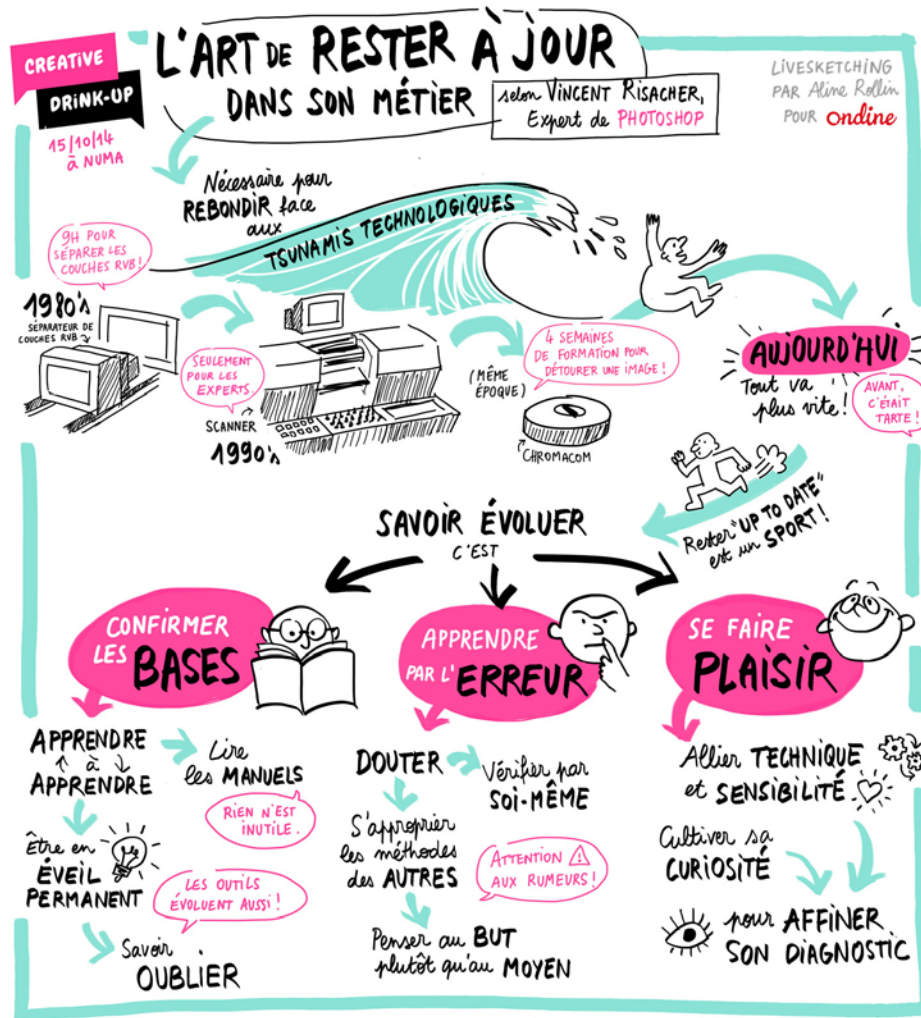 CREATIVE
DRINK-UP
15/10/14
à NUMA
L'ART DE RESTER À JOUR
DANS SON MÉTIER
selon VINCENT RISACHER,
Expert de PHOTOSHOP
LIVESKETCHING
PAR Aline Rollin
POUR ondine
Nécessaire pour
REBONDIR face
aux
TSUNAMIS TECHNOLOGIQUES
9H POUR
SÉPARER LES
COUCHES RVB!
1980's
SÉPARATEUR DE
COUCHES RVB
SEULEMENT
POUR LES
EXPERTS.
SCANNER
1990's
(MÊME
ÉPOQUE)
4 SEMAINES
DE FORMATION POUR
DÉTOURER UNE IMAGE!
CHROMACOM
AUJOURD'HUI
Tout va
plus vite!
AVANT,
C'ÉTAIT
TARTE!
Rester "UP TO DATE"
est un SPORT!
SAVOIR ÉVOLUER
C'EST
CONFIRMER
LES BASES
APPRENDRE
à
APPRENDRE
Lire
les MANUELS
RIEN N'EST
INUTILE.
Être en
ÉVEIL
PERMANENT
LES OUTILS
ÉVOLUENT AUSSI!
Savoir
OUBLIER
APPRENDRE
PAR L'ERREUR
DOUTER
Vérifier par
SOI-MÊME
S'approprier
les méthodes
des AUTRES
ATTENTION
AUX RUMEURS!
Penser au BUT
plutôt qu'au MOYEN
SE FAIRE
PLAISIR
Allier TECHNIQUE
et SENSIBILITÉ
Cultiver sa
CURIOSITÉ
pour AFFINER
SON DIAGNOSTIC